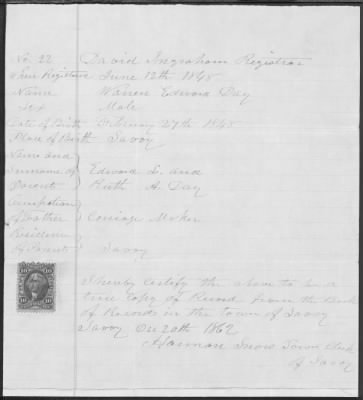 No 22 David Ingraham Registrar
When Registered June 12th 1848
Name Warren Edward Day
Sex Male
Date of Birth February 27th 1848
Place of Birth Savoy
Name and
Surname of Edward L. and
Parents Ruth A. Day
Occupation
of Father Carriage Maker
Residence
of Parents Savoy
I hereby certify the above to be a
true copy of Record from the Book
of Records in the town of Savoy
Savoy 20th 1862
Harmon Snow Town Clerk
of Savoy
10 10